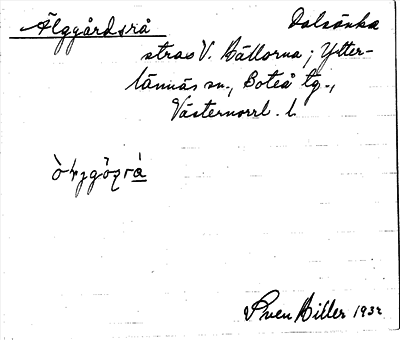 Älggårdsrå Dalsänka
strax V. Källorna; Ytter-
lännäs sn., Boteå tg.,
Västernorrl. l.
Sven Biller 1932